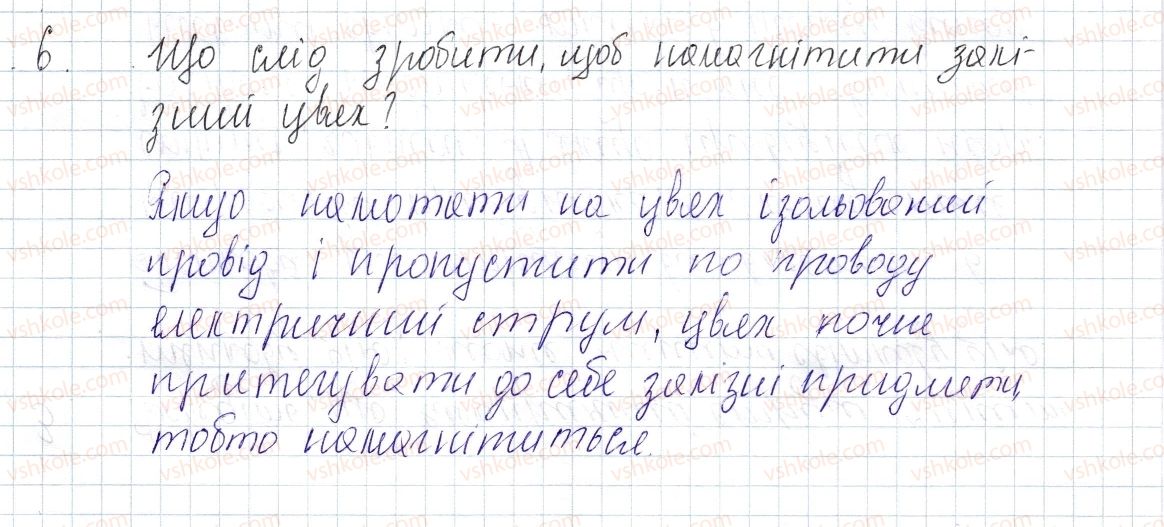 6. Що слід зробити, щоб намагнітити залі-
зний цвях?
Якщо намотати на цвях ізольований
провід і пропустити по проводу
електричний струм, цвях почне
притягувати до себе залізні придмети,
тобто намагнітиться.